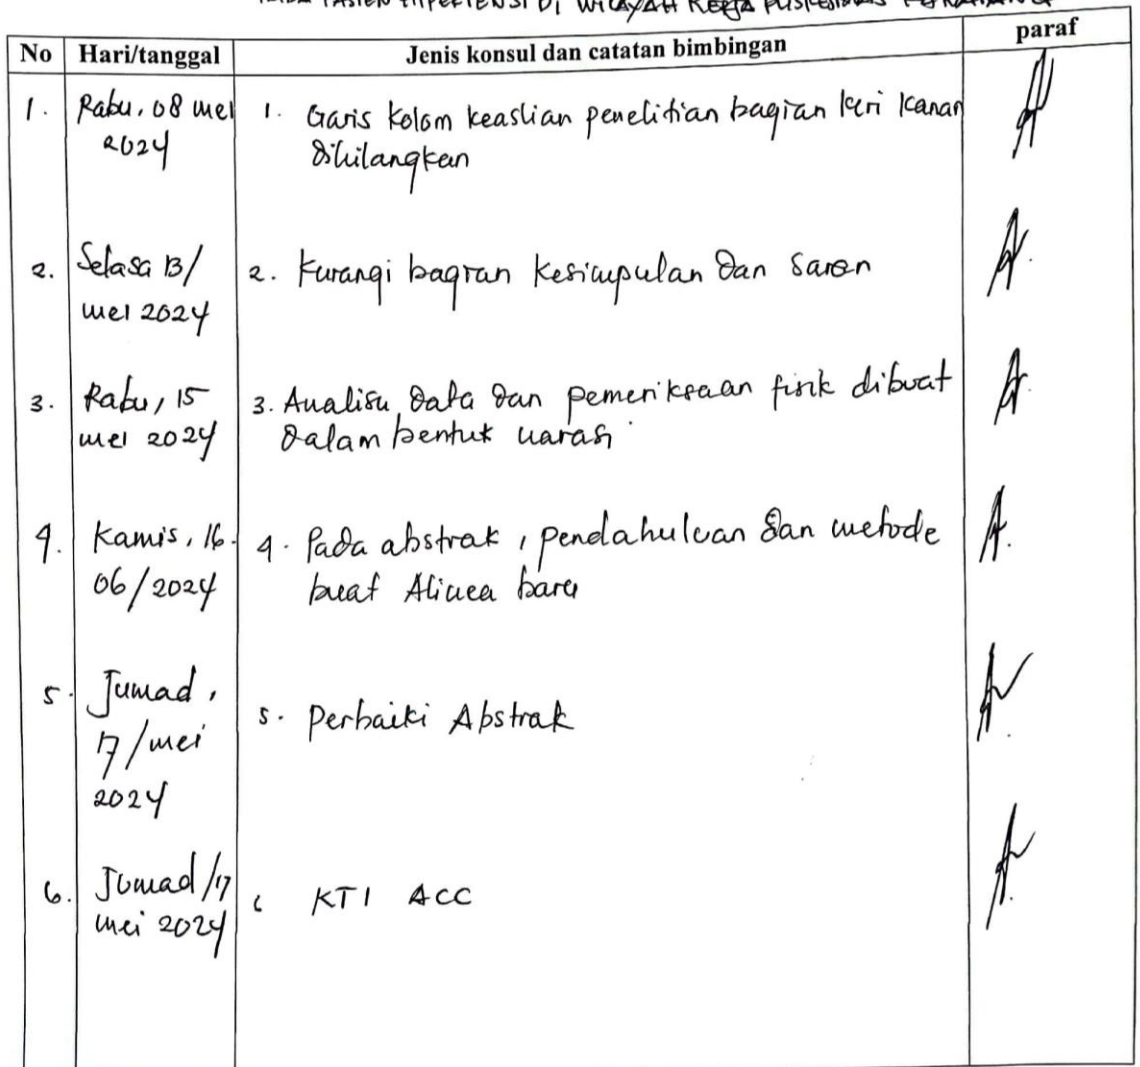 PASIEN HIPERTENSI DI WILAYAH KERJA PUSKESMAS
No Hari/tanggal Jenis konsul dan catatan bimbingan paraf
1. Rabu, 08 mei 1. Garis kolom keaslian penelitian bagian kiri kanan
2024 dihilangkan
2. Selasa 13/ 2. Kurangi bagian kesimpulan dan saran
mei 2024
3. Rabu, 15 3. Analisa data dan pemeriksaan fisik dibuat
mei 2024 dalam bentuk narasi
4. Kamis, 16. 4. Pada abstrak, pendahuluan dan metode
06/2024 buat Alinea baru
5. Jumad, 5. Perbaiki Abstrak
17/mei
2024
6. Jumad/17 KTI ACC
mei 2024